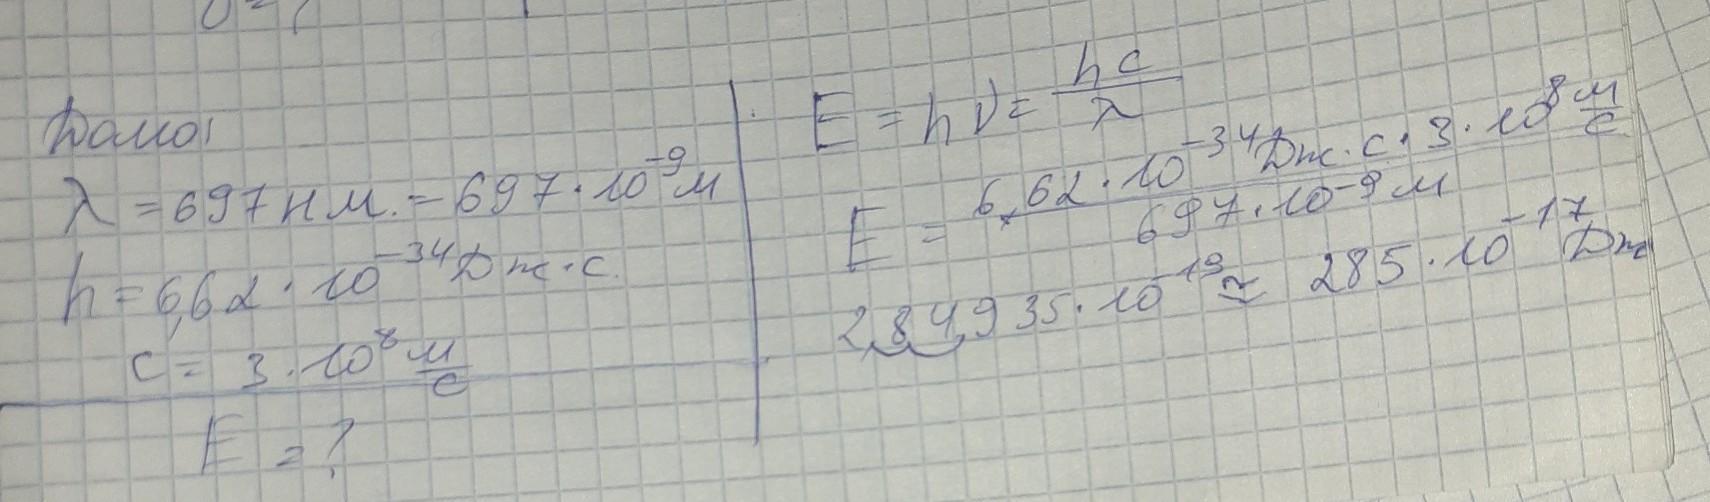 Дано:
λ = 697 нм. = 697 · 10⁻⁹ м
h = 6,62 · 10⁻³⁴ Дж · с.
c = 3 · 10⁸ м/с
E = ?
E = hν = hc/λ
E = 6,62 · 10⁻³⁴ Дж · с · 3 · 10⁸ м/с / 697 · 10⁻⁹ м
2,84,935 · 10⁻¹⁹ ≃ 285 · 10⁻¹⁷ Дж